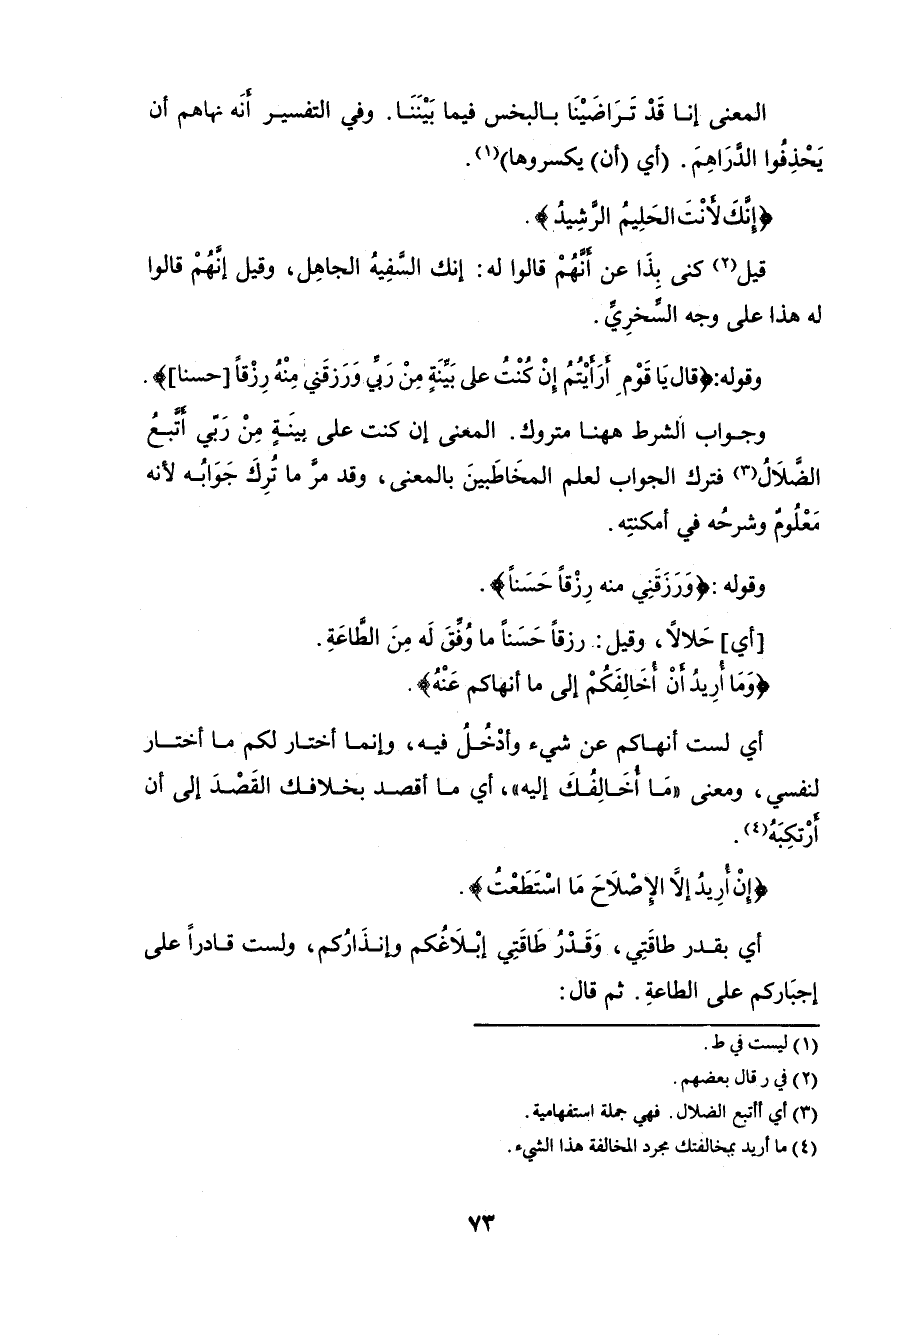 المعنى إنـا قَدْ تَـرَاضَيْنَا بـالبخس فيما بَيْنَنَـا. وفي التفسيـر أَنَه نهاهم أن
يَحْذِفُوا الدَّرَاهِمَ. (أي (أن) يكسروها)(١).
﴿إِنَّكَ لَأَنْتَ الحَلِيمُ الرَّشِيدُ﴾.
قيل(٢) كنى بِذَا عن أَنَّهُمْ قالوا له: إنك السَّفِيهُ الجاهِل، وقيل إنَّهُمْ قالوا
له هذا على وجه السَّخرِيِّ.
وقوله:﴿قال يَا قَوْمِ أَرَأَيْتُمُ إِنْ كُنْتُ على بَيِّنَةٍ مِنْ رَبِّي وَرَزقَنِي مِنْهُ رِزْقاً [حسنا]﴾.
وجـواب الشرط ههنـا متروك. المعنى إن كنت على بينَـةٍ مِنْ رَبّي أَتَّبـعُ
الضَّلَالُ(٣) فترك الجواب لعلم المخَاطَبينَ بالمعنى، وقد مرَّ ما تُرِكَ جَوَابُـه لأنه
مَعْلُومٌ وشرحُه في أمكنتِه.
وقوله :﴿وَرَزَقَنِي منه رِزْقاً حَسَناً﴾.
[أي] حَلالاً، وقيل: رزقاً حَسَناً ما وُفِّقَ لَه مِنَ الطَّاعَةِ.
﴿وَمَا أُرِيدُ أَنْ أُخَالِفَكُمْ إلى ما أنهاكم عَنْهُ﴾.
أي لست أنهـاكم عن شيء وأدْخُـلُ فيـه، وإنمـا أختـار لكم مـا أختـار
لنفسي، ومعنى «مَـا أُخَـالِفُـكَ إليه»، أي مـا أقصـد بخـلافـك القَصْـدَ إلى أن
أَرْتكِبَهُ(٤).
﴿إِنْ أُرِيدُ إلَّا الإصْلَاحَ مَا اسْتَطَعْتُ﴾.
أي بقـدر طاقَتِي، وَقَـدْرُ طَاقَتِي إبْـلَاغُكم وإنـذَارُكم، ولست قـادراً على
إجبَاركم على الطاعةِ. ثم قال:
(١) ليست في ط.
(٢) في ر قال بعضهم.
(٣) أي أأتبع الضلال. فهي جملة استفهامية.
(٤) ما أريد بمخالفتك مجرد المخالفة هذا الشيء.
٧٣